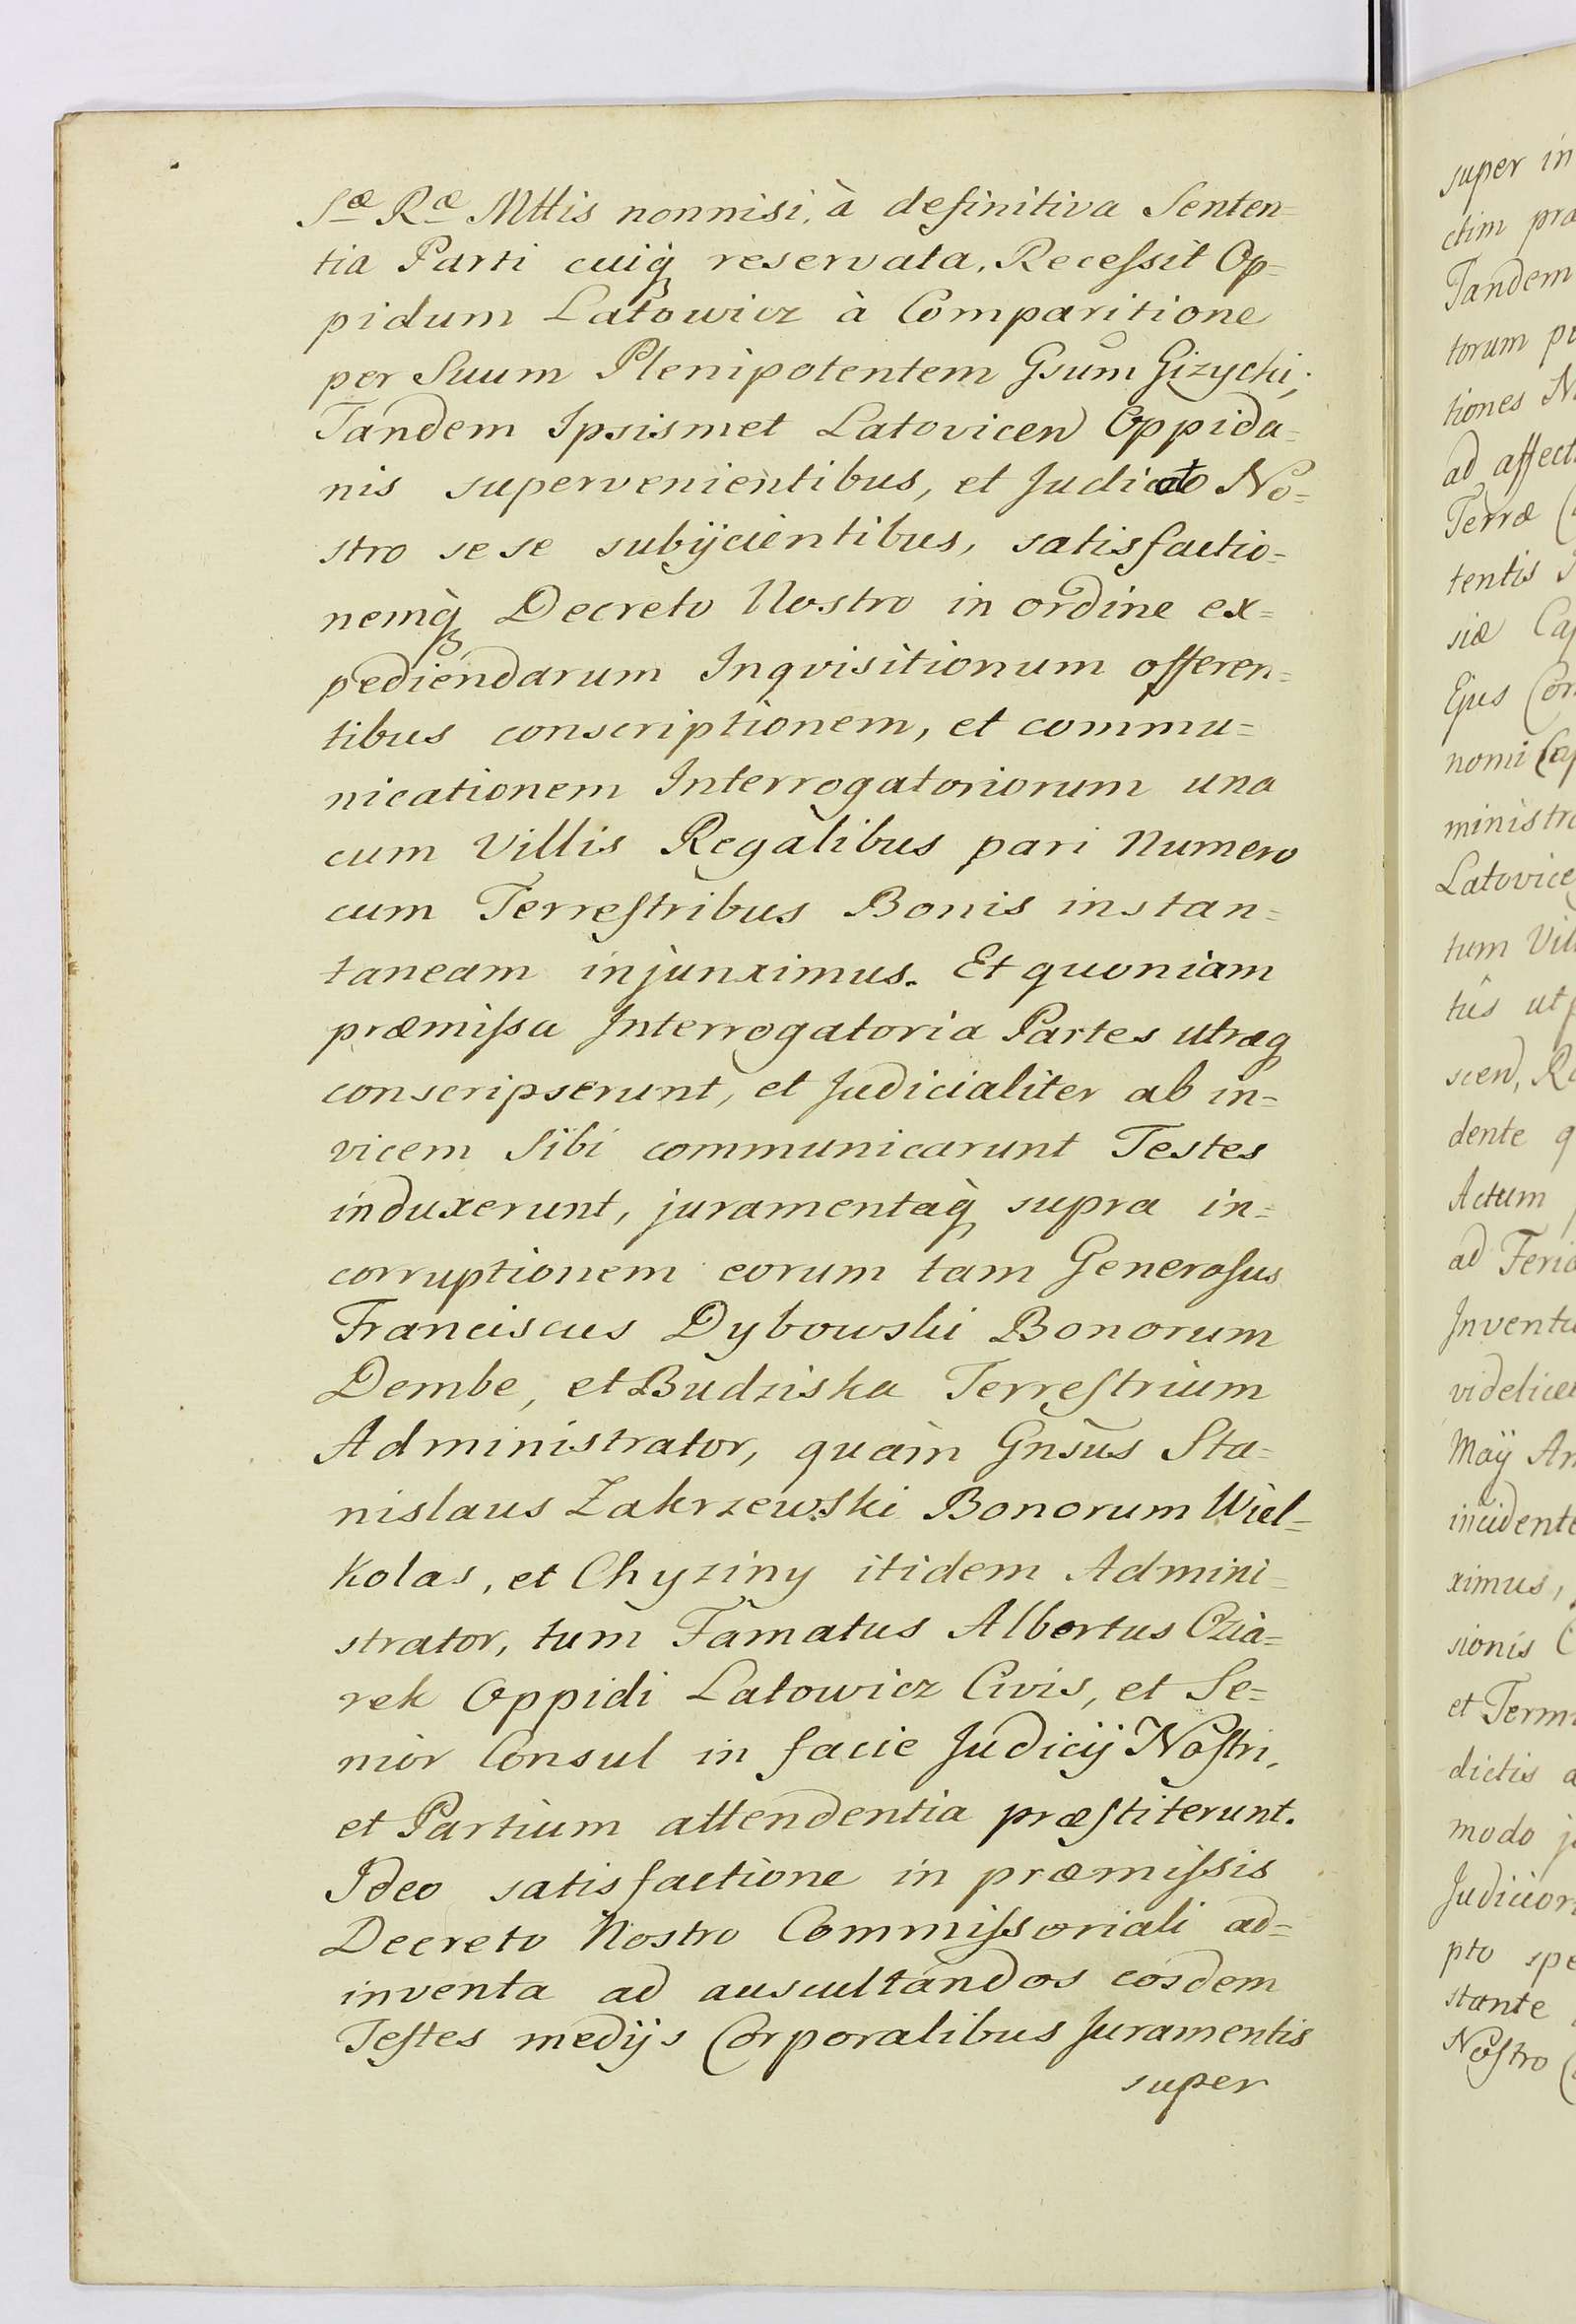 Sæ Ræ Mttis nonnisi à definitiva Senten=
tia Parti cuiq́ reservata, Recessit Op=
pidum Latowicz à Comparitione
per Suum Plenipotentem Gsum Gizycki;
Tandem Ipsismet Latovicen Oppida=
nis supervenientibus, et Judicato No=
stro sese subijcientibus, satisfactio=
nemq́ Decreto Nostro in ordine ex=
pediendarum Inqvisitionum offeren=
tibus conscriptionem, et commu=
nicationem Interrogatoriorum una
cum Villis Regalibus pari Numero
cum Terrestribus Bonis instan=
taneam injunximus. Et quoniam
præmissa Interrogatoria Partes utræq
conscripserunt, et Judicialiter ab in=
vicem Sibi communicarunt Testes
induxerunt, juramentaq́ supra in=
corruptionem eorum tam Generosus
Franciscus Dybowski Bonorum
Dembe, et Budziska Terrestrium
Administrator, quam Gnsus Sta=
nislaus Zakrzewski Bonorum Wiel=
kolas, et Chyziny itidem Admini=
strator, tum Famatus Albertus Ozia=
rek Oppidi Latowicz Civis, et Se=
nior Consul in facie Judicij Nostri,
et Partium attendentia præstiterunt.
Ideo satisfactione in præmissis
Decreto Nostro Commissoriali ad=
inventa ad auscultandos eosdem
Testes medijs Corporalibus Juramentis
super
super in
ctim præ
Tandem
torum
tiones
ad affect
Terræ
tentis
siæ
Ejus
nomi
ministra
Latovice
tum
tûs
scen,
dente
Actum
ad Feria
Inventu
videlicet
Maij
incidente
ximus,
sionis
et
dictis
modo
Judicior
pto spe
stante
Nostro